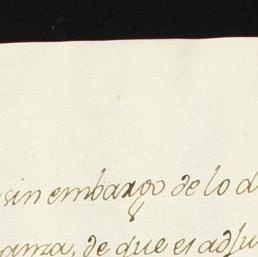 sin embargo de lo d
anza, de que es adju